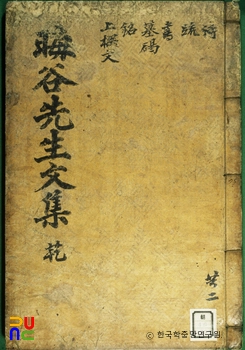 詩
疏
書
墓碣
銘
上樑文
晦谷先生文集 乾
共二
ⓒ 한국학중앙연구원